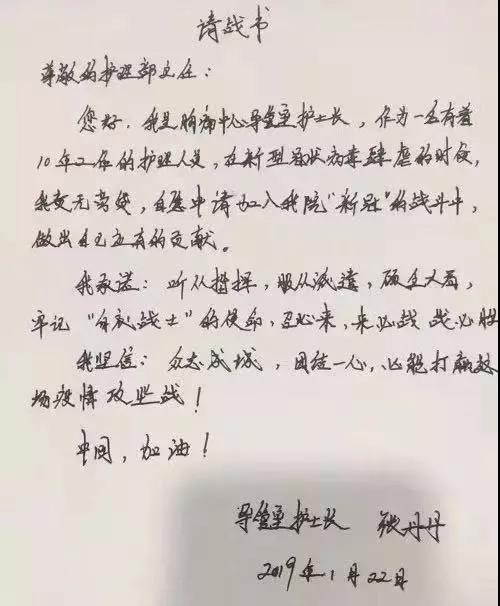 请战书
尊敬的护理部主任：
您好，我是胸痛中心导管室护士长，作为一名有着
10年工作的护理人员，在新型冠状病毒肆虐的时候，
我责无旁贷，自愿申请加入我院“新冠”的战斗中，
做出自己应有的贡献。
我承诺：听从指挥，服从派遣，顾全大局，
牢记“白衣战士”的使命，召必来，来必战 战必胜
我坚信：众志成城，团结一心，必能打赢这
场疫情攻坚战！
中国，加油！
导管室护士长 张丹丹
2019年1月22日